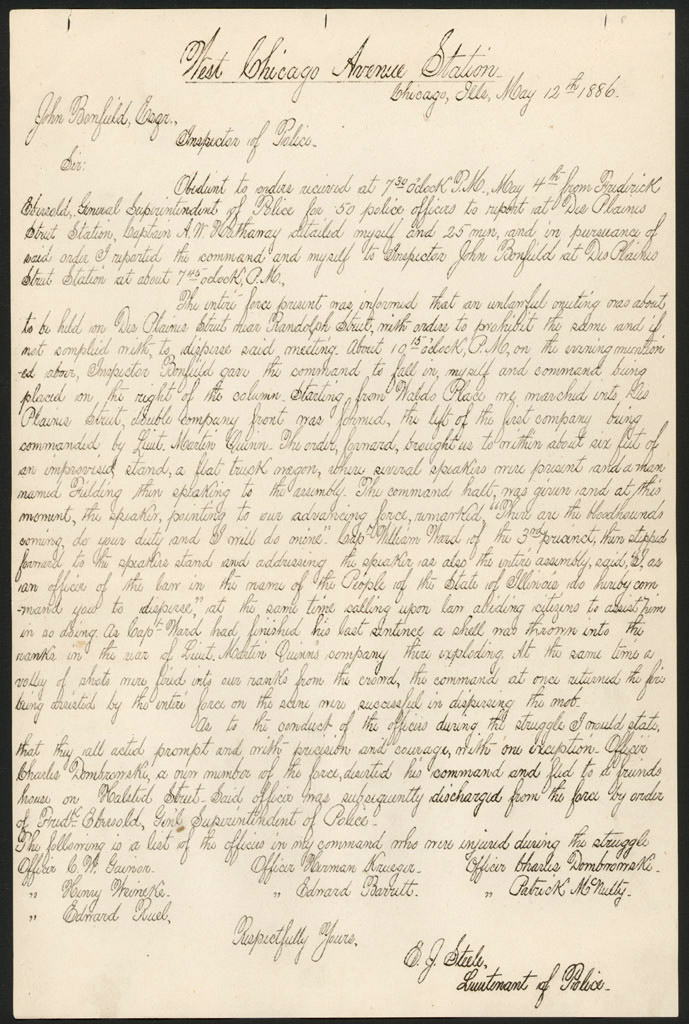 West Chicago Avenue Station.
Chicago, Ills, May 12th 1886.
John Bonfield, Esqr.,
Inspector of Police.
Sir:
Obedient to orders received at 7 30 o'clock P.M., May 4th from Frederick
Ebersold, General Superintendent of Police for 50 police officers to report at Des Plaines
Street Station, Captain A.W. Hathaway detailed myself and 25 men, and in pursuance of
said order I reported the command and myself to Inspector John Bonfield at Des Plaines
Street Station at about 7 45 o'clock, P.M.,
The entire force present was informed that an unlawful meeting was about
to be held on Des Plaines Street near Randolph Street, with orders to prohibit the same and if
not complied with, to disperse said meeting. About 10 15 o'clock, P.M. on the evening mention
-ed above, Inspector Bonfield gave the command to fall in, myself and command being
placed on the right of the column. Starting from Waldo Place we marched into Des
Plaines Street, double company front was formed, the left of the first company being
commanded by Lieut. Martin Quinn. The order, forward, brought us to within about six feet of
an improvised stand, a flat truck wagon, where several speakers were present and a man
named Fielding then speaking to the assembly. The command halt, was given and at this
moment, the speaker, pointing to our advancing force, remarked, "There are the bloodhounds
coming, do your duty and I will do mine." Capt William Ward of the 3rd precinct, then stepped
forward to the speakers stand and addressing the speaker as also the entire assembly, said, "I, as
an officer of the law in the name of the People of the State of Illinois do hereby com
-mand you to disperse," at the same time calling upon law abiding citizens to assist him
in so doing. As Capt. Ward had finished his last sentence a shell was thrown into the
ranks in the rear of Lieut. Martin Quinn's company there exploding. At the same time a
volley of shots were fired into our ranks from the crowd, the command at once returned the fire
being assisted by the entire force on the scene were successful in dispersing the mob.
As to the conduct of the officers during the struggle I would state,
that they all acted prompt and with precision and courage, with one exception. Officer
Charles Dombrowski, a new member of the force, deserted his command and fled to a friends
house on Halsted Street. Said officer was subsequently discharged from the force by order
of Fredk. Ebersold, Genl. Superintendent of Police.
The following is a list of the officers in my command who were injured during the struggle
Officer C. W. Gainor. Officer Herman Krueger. Officer Charles Dombrowski.
" Henry Weineke. " Edward Barrett. " Patrick McNulty.
" Edward Ruel.
Respectfully Yours,
E. J. Steele,
Lieutenant of Police.